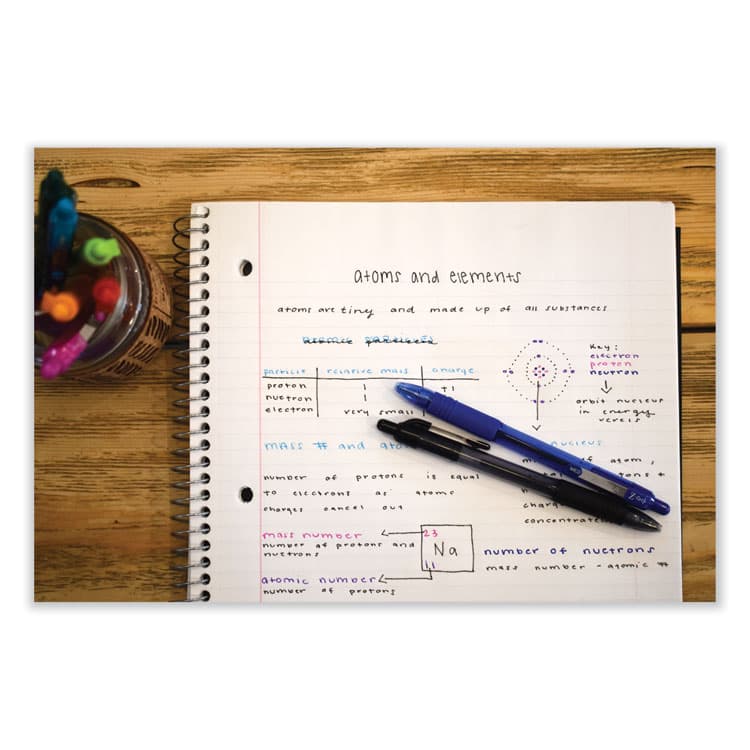 atoms and elements
atoms are tiny and made up of all substances
particle relative mass charge
proton 1 +1
nuetron 1
electron very small
Key:
electron
proton
neutron
orbit nucleus
in energy
mass # and
nucleus
of atom,
number of protons is equal
to electrons as atoms
charges cancel out
mass number
number of protons and
nuetrons
23
Na
11
atomic number
number of protons
number of nuetrons
mass number - atomic #